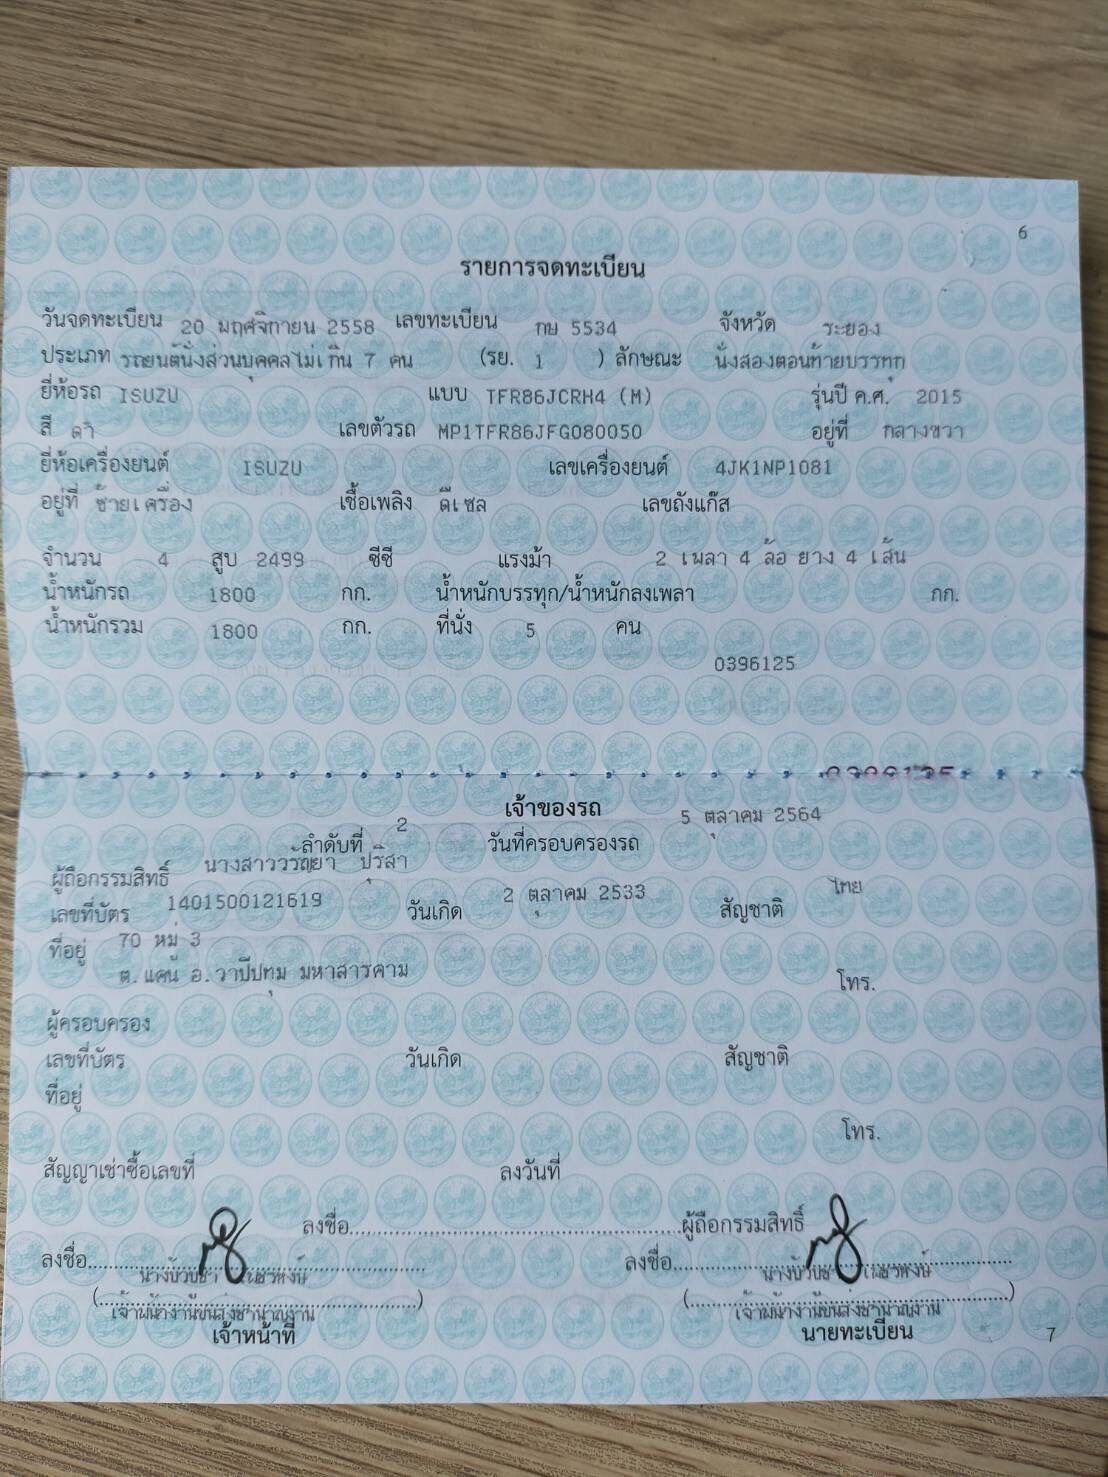 6
รายการจดทะเบียน
วันจดทะเบียน 20 พฤศจิกายน 2558 เลขทะเบียน กษ 5534 จังหวัด ระยอง
ประเภท รถยนต์นั่งส่วนบุคคลไม่เกิน 7 คน (รย. 1 ) ลักษณะ นั่งสองตอนท้ายบรรทุก
ยี่ห้อรถ ISUZU แบบ TFR86JCRH4 (M) รุ่นปี ค.ศ. 2015
สี ดำ เลขตัวรถ MP1TFR86JFG080050 อยู่ที่ กลางขวา
ยี่ห้อเครื่องยนต์ ISUZU เลขเครื่องยนต์ 4JK1NP1081
อยู่ที่ ซ้ายเครื่อง เชื้อเพลิง ดีเซล เลขถังแก๊ส
จำนวน 4 สูบ 2499 ซีซี แรงม้า 2 เพลา 4 ล้อ ยาง 4 เส้น
น้ำหนักรถ 1800 กก. น้ำหนักบรรทุก/น้ำหนักลงเพลา กก.
น้ำหนักรวม 1800 กก. ที่นั่ง 5 คน
0396125
เจ้าของรถ
ลำดับที่ 2 วันที่ครอบครองรถ 5 ตุลาคม 2564
ผู้ถือกรรมสิทธิ์ นางสาววรัญยา ปุริสา
เลขที่บัตร 1401500121619 วันเกิด 2 ตุลาคม 2533 สัญชาติ ไทย
ที่อยู่ 70 หมู่ 3
ต.แคน อ.วาปีปทุม มหาสารคาม โทร.
ผู้ครอบครอง
เลขที่บัตร วันเกิด สัญชาติ
ที่อยู่
โทร.
สัญญาเช่าซื้อเลขที่ ลงวันที่
ลงชื่อ ผู้ถือกรรมสิทธิ์
ลงชื่อ ลงชื่อ
(เจ้าพนักงานขนส่งชำนาญงาน) (เจ้าพนักงานขนส่งชำนาญงาน)
เจ้าหน้าที่ นายทะเบียน
7